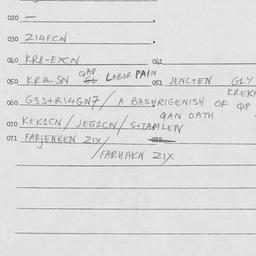 020 —
030 Z14FCN
040 KR8-EXCN 041
050 KRA..SN QAP LABOR PAIN 051 JENCTEN GLY
KREKH
060 G3S+R14GN7 / A BASHRIGENISH OF QP
QAN OATH
070 KEK1CN / JEG2CN / S+TAMLEN
071 FARJENKEN ZIX / 072
/ FARHAKN ZIX